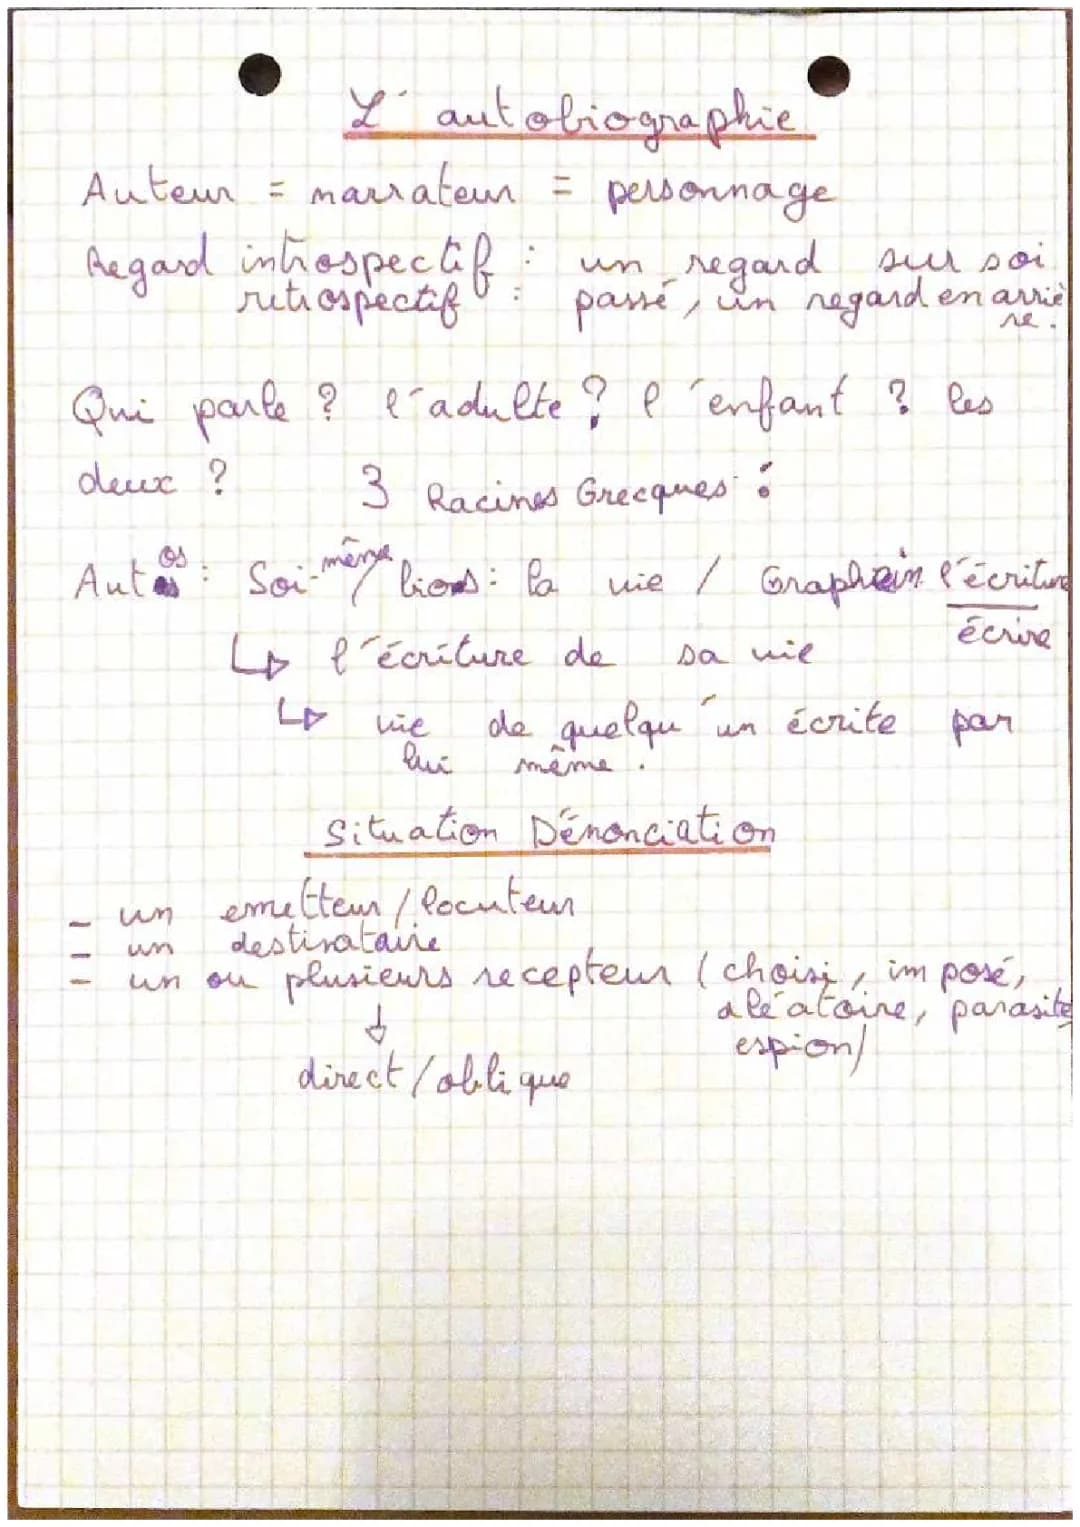 L'autobiographie
Auteur = narrateur = personnage
Regard introspectif : un regard sur soi
retrospectif : passé, un regard en arriè
re.
Qui parle ? l'adulte ? l'enfant ? les
deux ? 3 Racines Grecques :
Autos : Soi-même / bios : la vie / Graphein l'écriture
écrire
↳ l'écriture de sa vie
↳ vie de quelqu'un écrite par
lui même.
Situation Dénonciation
- un emetteur / locuteur
- un destinataire
- un ou plusieurs recepteur ( choisi, imposé,
aléatoire, parasite
espion/
↓
direct / oblique